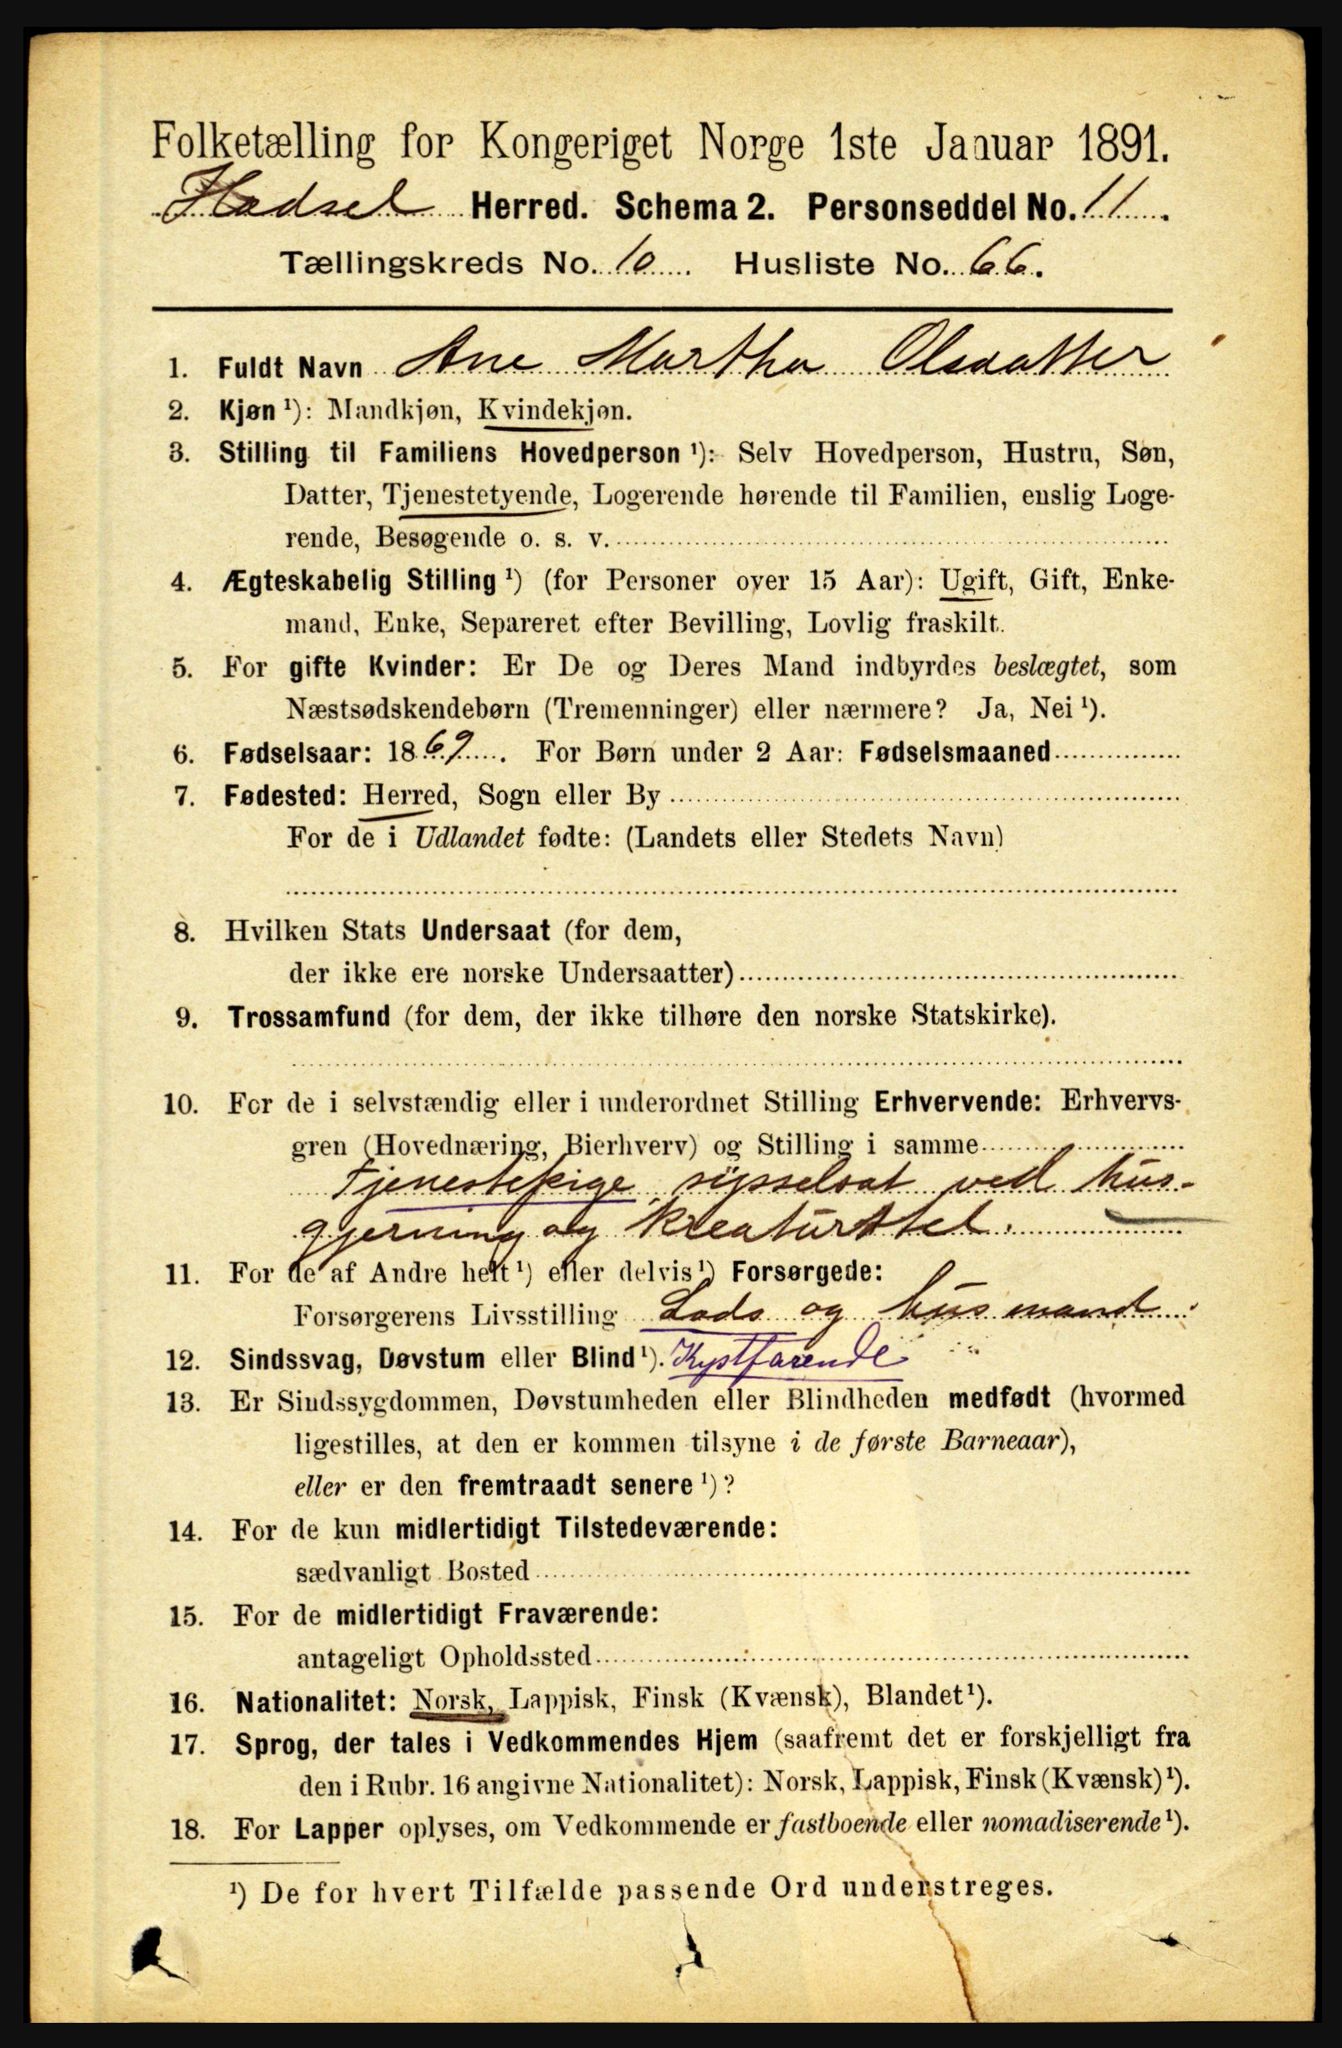 Folketælling for Kongeriget Norge 1ste Januar 1891.
Hadsel Herred. Schema 2. Personseddel No. 11.
Tællingskreds No. 10. Husliste No. 66.
1. Fuldt Navn Ane Martha Olsdatter
2. Kjøn ¹): Mandkjøn, Kvindekjøn.
3. Stilling til Familiens Hovedperson ¹): Selv Hovedperson, Hustru, Søn,
Datter, Tjenestetyende, Logerende hørende til Familien, enslig Loge-
rende, Besøgende o. s. v.
4. Ægteskabelig Stilling ¹) (for Personer over 15 Aar): Ugift, Gift, Enke-
mand, Enke, Separeret efter Bevilling, Lovlig fraskilt.
5. For gifte Kvinder: Er De og Deres Mand indbyrdes beslægtet, som
Næstsødskendebørn (Tremenninger) eller nærmere? Ja, Nei ¹).
6. Fødselsaar: 1869. For Børn under 2 Aar: Fødselsmaaned
7. Fødested: Herred, Sogn eller By
For de i Udlandet fødte: (Landets eller Stedets Navn)
8. Hvilken Stats Undersaat (for dem,
der ikke ere norske Undersaatter)
9. Trossamfund (for dem, der ikke tilhøre den norske Statskirke).
10. For de i selvstændig eller i underordnet Stilling Erhvervende: Erhvervs-
gren (Hovednæring, Bierhverv) og Stilling i samme
Tjenestepige, sysselsat ved hus-
gjerning og kreaturstel.
11. For de af Andre helt ¹) eller delvis ¹) Forsørgede:
Forsørgerens Livsstilling Lods og husmand
12. Sindssvag, Døvstum eller Blind ¹). Kystfarende
13. Er Sindssygdommen, Døvstumheden eller Blindheden medfødt (hvormed
ligestilles, at den er kommen tilsyne i de første Barneaar),
eller er den fremtraadt senere ¹)?
14. For de kun midlertidigt Tilstedeværende:
sædvanligt Bosted
15. For de midlertidigt Fraværende:
antageligt Opholdssted
16. Nationalitet: Norsk, Lappisk, Finsk (Kvænsk), Blandet ¹).
17. Sprog, der tales i Vedkommendes Hjem (saafremt det er forskjelligt fra
den i Rubr. 16 angivne Nationalitet): Norsk, Lappisk, Finsk (Kvænsk) ¹).
18. For Lapper oplyses, om Vedkommende er fastboende eller nomadiserende ¹).
¹) De for hvert Tilfælde passende Ord understreges.